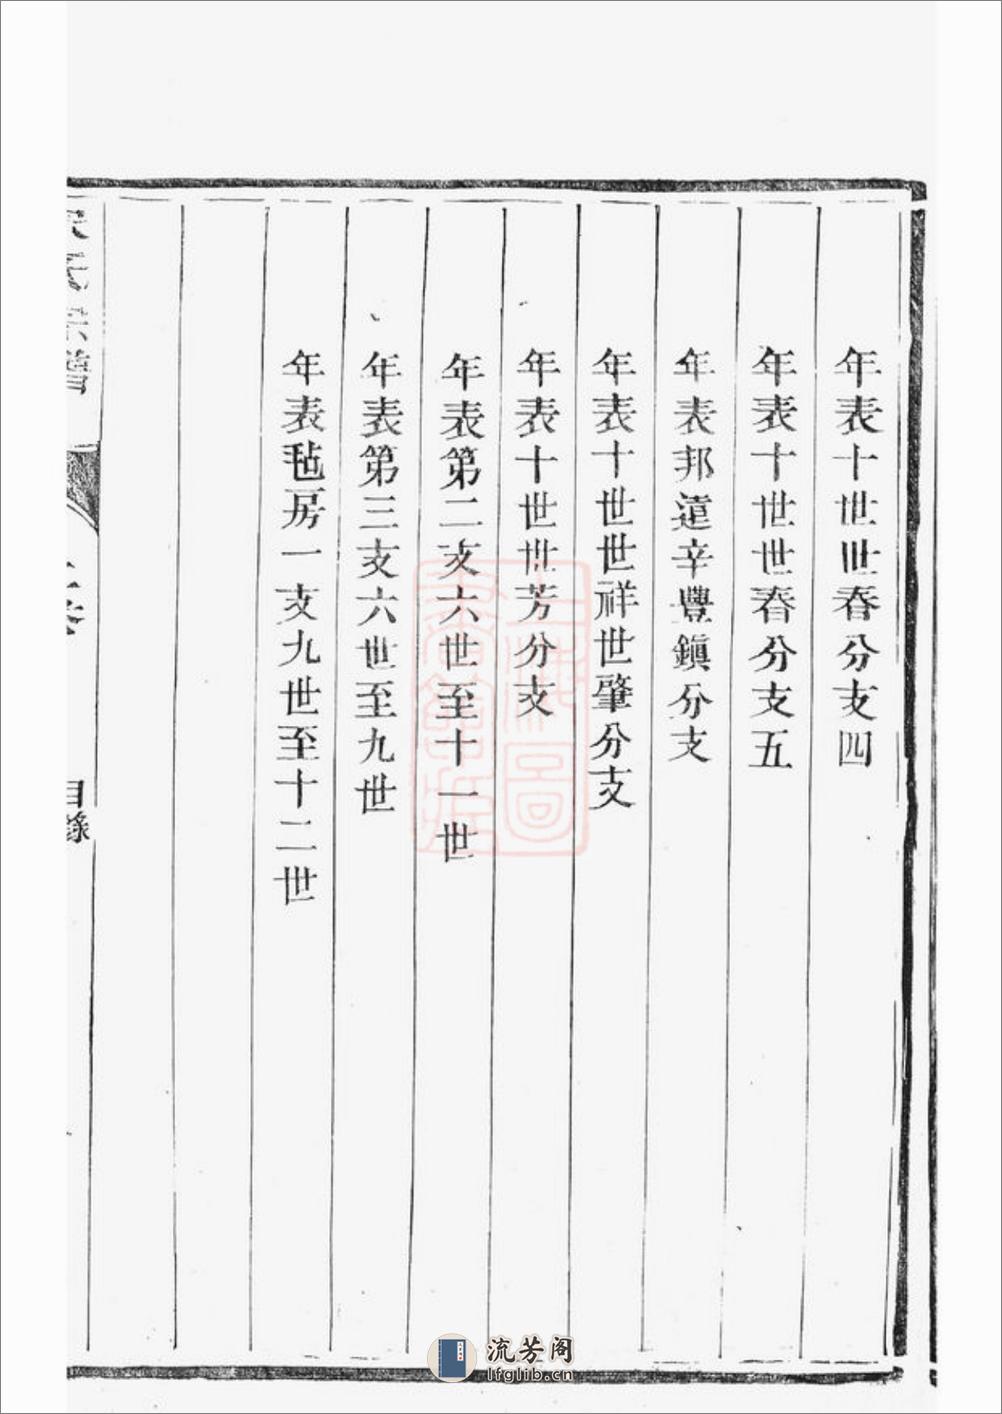 年表十世世春分支四
年表十世世春分支五
年表邦遠辛豐鎭分支
年表十世世祥世肇分支
年表十世世芳分支
年表第二支六世至十一世
年表第三支六世至九世
年表毡房一支九世至十二世
氏宗譜
目錄
上海圖
書館藏
流芳阁
lfglib.cn